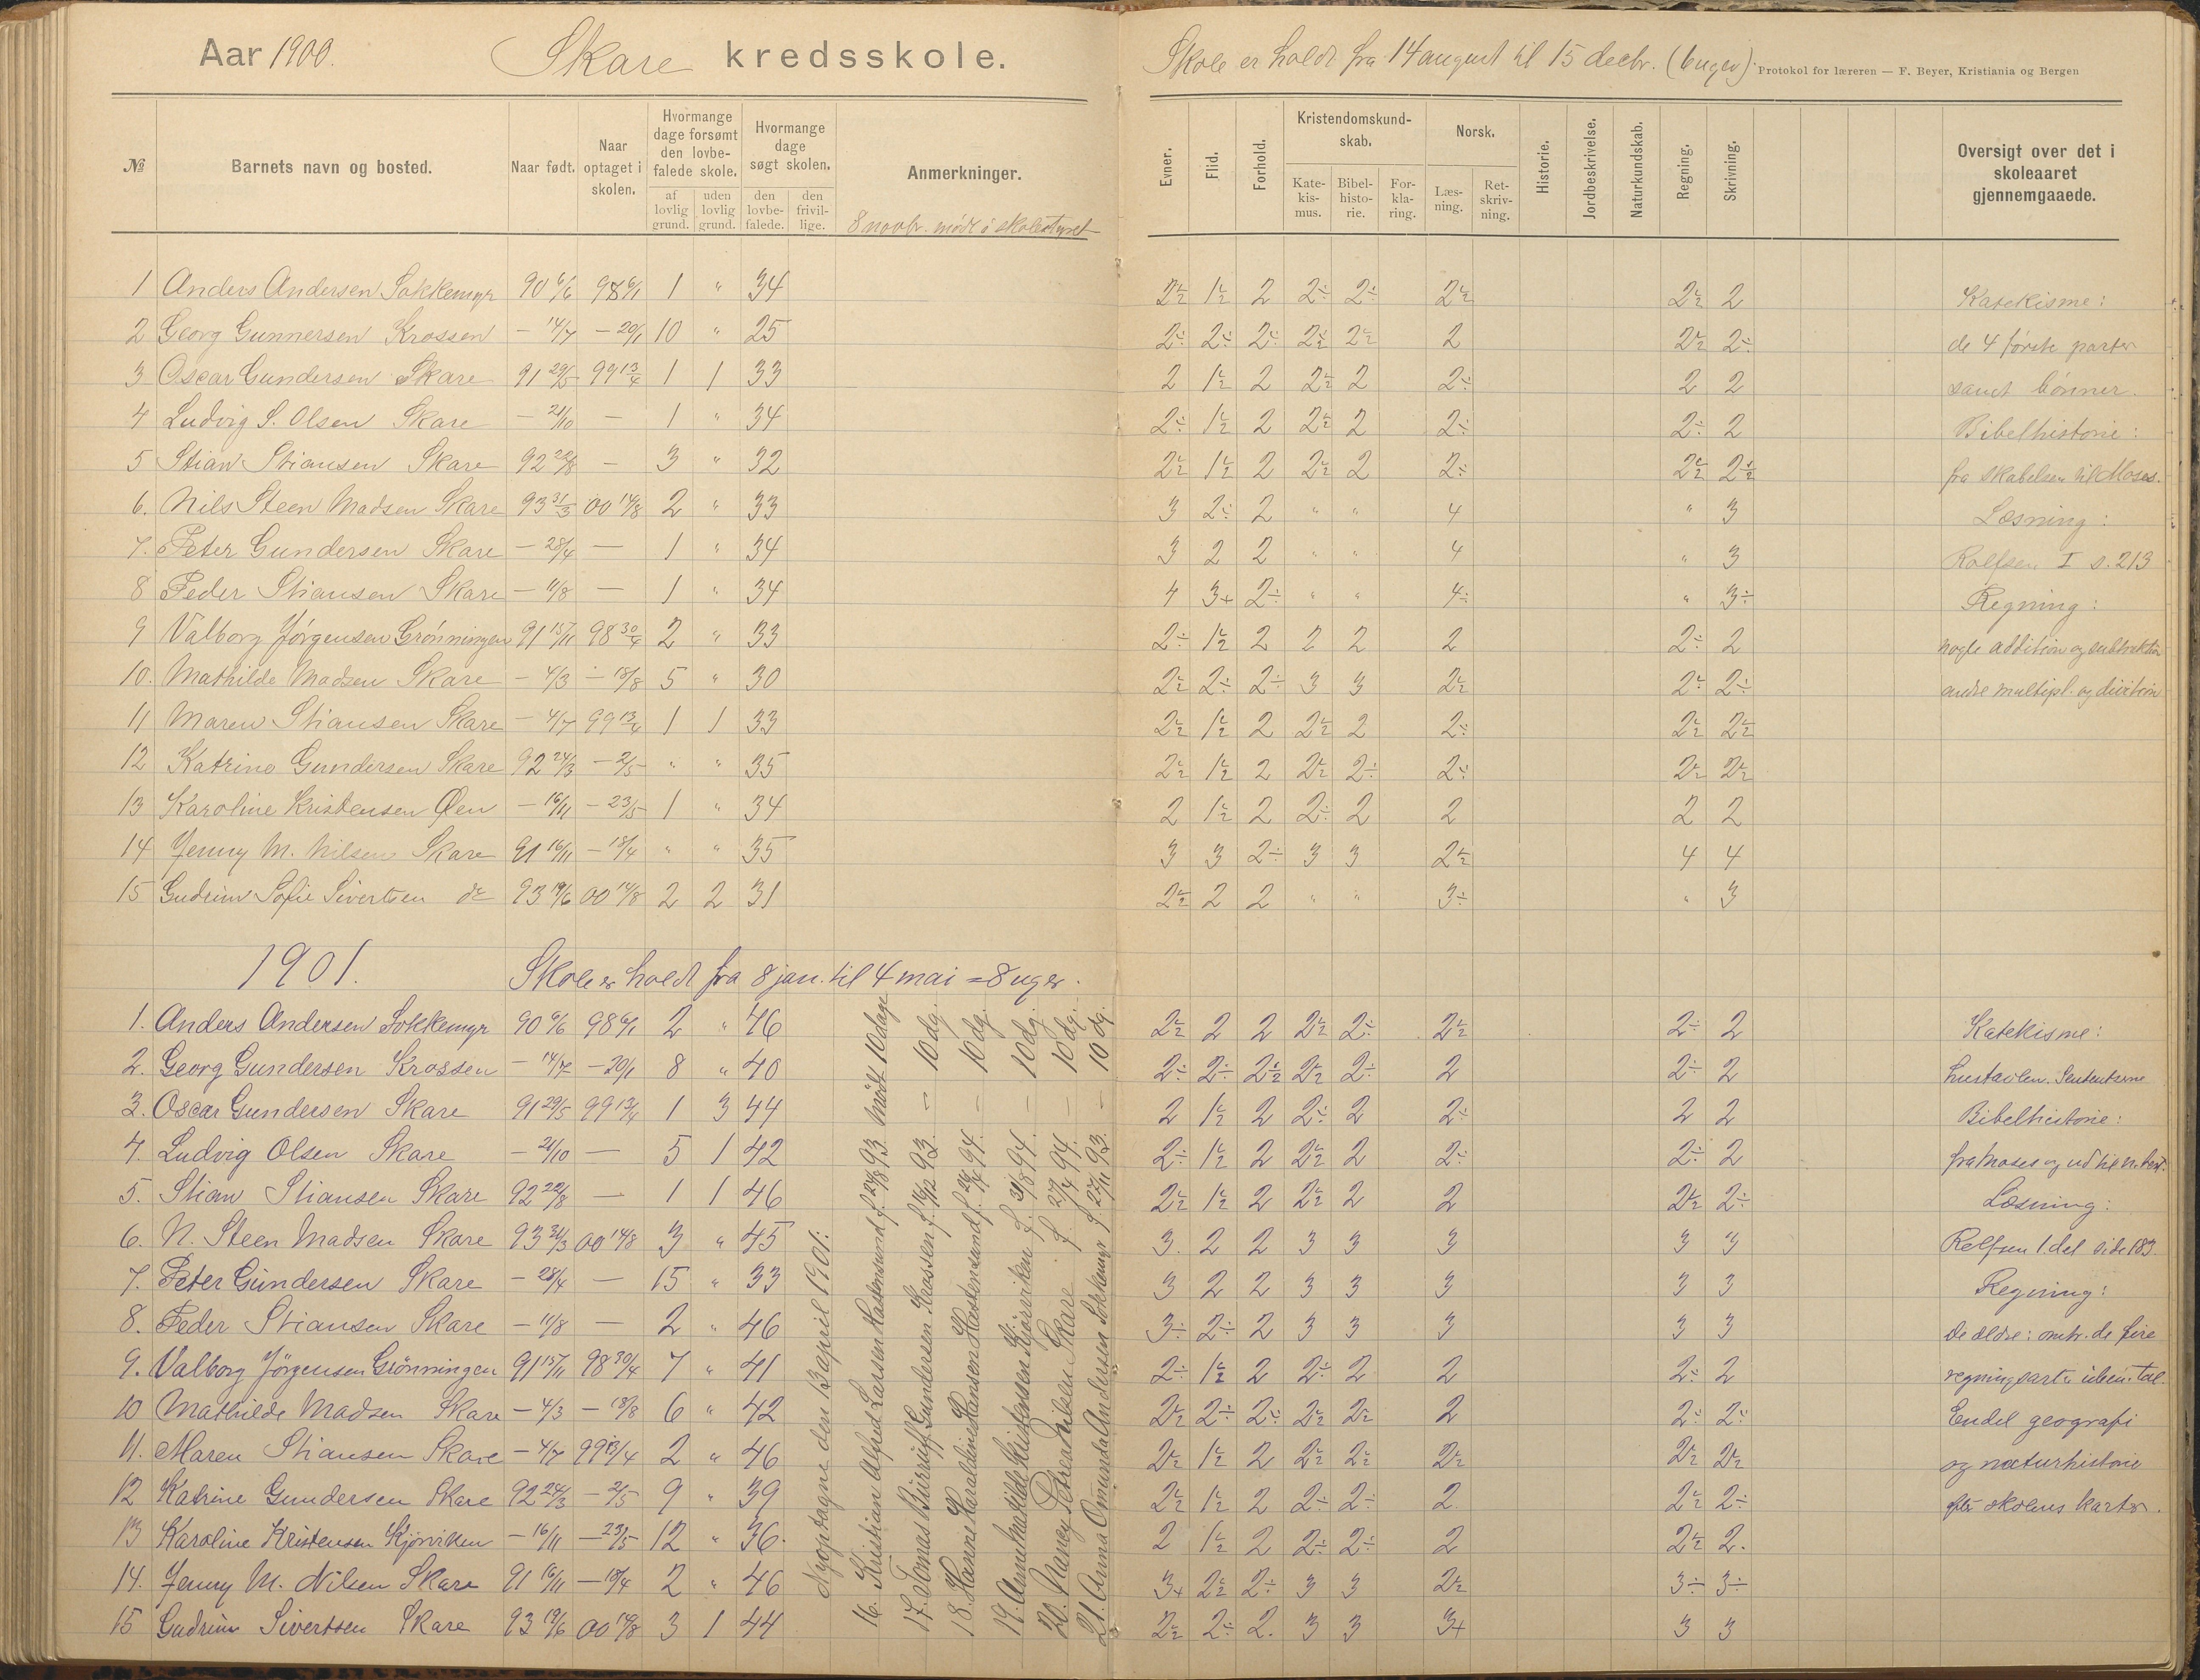 Aar 1900. Skare kredsskole.
Skole er holdt fra 14 august til 15 decbr. (6 uger).
Protokol for læreren — F. Beyer, Kristiania og Bergen
№ Barnets navn og bosted. Naar født. Naar optaget i skolen. Hvormange dage forsømt den lovbefalede skole. af lovlig grund. uden lovlig grund. Hvormange dage søgt skolen. den lovbefalede. den frivillige. Anmerkninger.
8 novbr. møde i skolestyret
Evner. Flid. Forhold. Kristendomskundskab. Katekismus. Bibelhistorie. Forklaring. Norsk. Læsning. Retskrivning. Historie. Jordbeskrivelse. Naturkundskab. Regning. Skrivning. Oversigt over det i skoleaaret gjennemgaaede.
1 Anders Andersen Sokkemyr 90 6/6 98 6/1 1 " 34 2½ 1½ 2 2÷ 2÷ 2½ 2½ 2 Katekisme:
2 Georg Gunnersen Krossen – 14/7 – 20/1 10 " 25 2÷ 2÷ 2÷ 2½ 2½ 2 2½ 2÷ de 4 første parter
3 Oscar Gundersen Skare 91 29/5 99 13/4 1 1 33 2 1½ 2 2½ 2 2÷ 2 2 samt bønner.
4 Ludvig S. Olsen Skare – 21/10 – 1 " 34 2÷ 1½ 2 2½ 2 2÷ 2÷ 2 Bibelhistorie:
5 Stian Stiansen Skare 92 22/8 – 3 " 32 2½ 1½ 2 2½ 2 2÷ 2½ 2½ fra skabelsen til Moses.
6. Nils Steen Madsen Skare 93 31/3 00 14/8 2 " 33 3 2÷ 2 " " 4 " 3 Læsning:
7. Peter Gundersen Skare – 28/4 – 1 " 34 3 2 2 " " 4 " 3 Rolfsen I s. 213
8 Peder Stiansen Skare – 11/8 – 1 " 34 4 3+ 2÷ " " 4÷ " 3÷ Regning:
9 Valborg Jørgensen Grønningen 91 15/11 98 30/4 2 " 33 2÷ 1½ 2 2 2 2 2÷ 2 nogle addition og subtraktion
10. Mathilde Madsen Skare – 4/3 – 18/8 5 " 30 2½ 2÷ 2÷ 3 3 2½ 2÷ 2÷ andre multipl. og division
11 Maren Stiansen Skare – 4/7 99 13/4 1 1 33 2½ 1½ 2 2½ 2 2÷ 2½ 2½
12 Katrine Gundersen Skare 92 24/3 – 2/5 " " 35 2½ 1½ 2 2½ 2÷ 2÷ 2½ 2½
13 Karoline Kristensen Øen – 16/11 – 23/5 1 " 34 2 1½ 2 2÷ 2 2 2 2
14 Jenny M. Nilsen Skare 91 16/11 – 18/4 " " 35 3 3 2÷ 3 3 2½ 4 4
15 Gudrun Sofie Sivertsen do 93 19/6 00 14/8 2 2 31 2½ 2 2 " " 3÷ " 3
1901. Skole er holdt fra 8 jan. til 4 mai = 8 uger.
1. Anders Andersen Sokkemyr 90 6/6 98 6/1 2 " 46 2½ 2 2 2½ 2÷ 2½ 2÷ 2 Katekisme:
2. Georg Gundersen Krossen – 14/7 – 20/1 8 " 40 2÷ 2÷ 2½ 2½ 2÷ 2 2÷ 2 hustavlen. Sententserne
3. Oscar Gundersen Skare 91 29/5 99 13/4 1 3 44 2 1½ 2 2÷ 2 2÷ 2 2 Bibelhistorie:
4. Ludvig Olsen Skare – 21/10 – 5 1 42 2÷ 1½ 2 2½ 2 2÷ 2÷ 2 fra Moses og ud til n. test.
5. Stian Stiansen Skare 92 22/8 – 1 1 46 2½ 1½ 2 2½ 2 2 2½ 2÷ Læsning:
6. N. Steen Madsen Skare 93 31/3 00 14/8 3 " 45 3. 2 2 3 3 3 3 3 Rolfsen 1. del side 183.
7. Peter Gundersen Skare – 28/4 – 15 " 33 3 2 2 3 3 3 3 3 Regning:
8. Peder Stiansen Skare – 11/8 – 2 " 46 3÷ 2÷ 2 3 3 3 3 3 De ældre: omtr. de fire
9. Valborg Jørgensen Grønningen 91 15/11 98 30/4 7 " 41 2÷ 1½ 2 2÷ 2 2 2÷ 2 regningsarter i tal.
10 Mathilde Madsen Skare – 4/3 – 18/8 6 " 42 2½ 2÷ 2÷ 2½ 2½ 2 2÷ 2÷ Endel geografi
11. Maren Stiansen Skare – 4/7 99 13/4 2 " 46 2½ 1½ 2 2½ 2½ 2½ 2½ 2½ og naturhistorie
12 Katrine Gundersen Skare 92 24/3 – 2/5 9 " 39 2½ 1½ 2 2÷ 2÷ 2. 2½ 2÷ efter skolens karter.
13 Karoline Kristensen Kjørviken – 16/11 – 23/5 12 " 36. 2 1½ 2 2÷ 2÷ 2 2½ 2.
14. Jenny M. Nilsen Skare 91 16/11 – 18/4 2 " 46 3+ 2½ 2÷ 3 3 2½ 3÷ 3÷
15 Gudrun Sivertsen Skare 93 19/6 00 14/8 3 1 44 2½ 2÷ 2. 3 3 3+ 3 3
Nyoptagne den 13 april 1901:
16. Kristian Alfred Larsen Hastensund f. 24/8 93. Mødt 10 dage
17. Tomas Burruff Gundersen Krossen f. 16/12 93. – 10 dg.
18. Hanne Haraldine Hansen Hastensund f. 26/2 94. – 10 dg.
19. Anne Matilde Kristensen Kjørviken f. 31/8 94. – 10 dg.
20. Nancy Petrea Nilsen Skare f. 27/4 94. – 10 dg.
21. Anna Omunda Andersen Sokkemyr f. 27/11 93. – 10 dg.